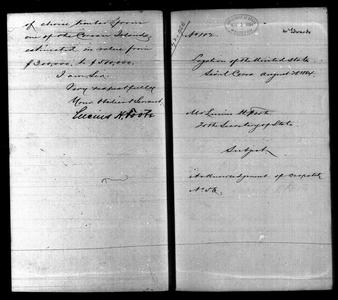 of choice timber from
one of the Corean Islands,
estimated in value from
$200,000. to $500,000.
I am Sir
Very respectfully
Your Obedient Servant
Lucius H. Foote
No. 102.
Legation of the United States
Seoul Corea August 28 1884.
Mr Lucius H. Foote
To the Secretary of State
Subject
Acknowledgement of despatch
No. 58.